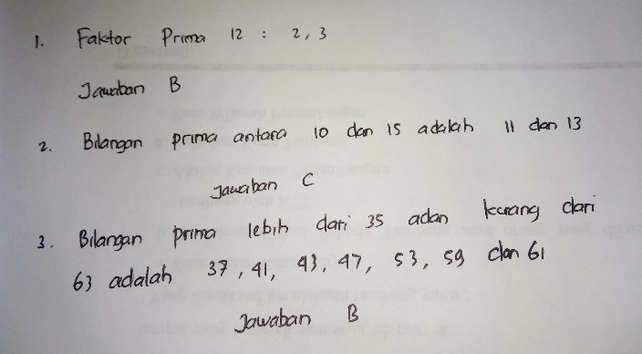 1. Faktor Prima 12 : 2, 3
Jawaban B
2. Bilangan prima antara 10 dan 15 adalah 11 dan 13
Jawaban C
3. Bilangan prima lebih dari 35 adan kurang dari
63 adalah 37, 41, 43, 47, 53, 59 dan 61
Jawaban B